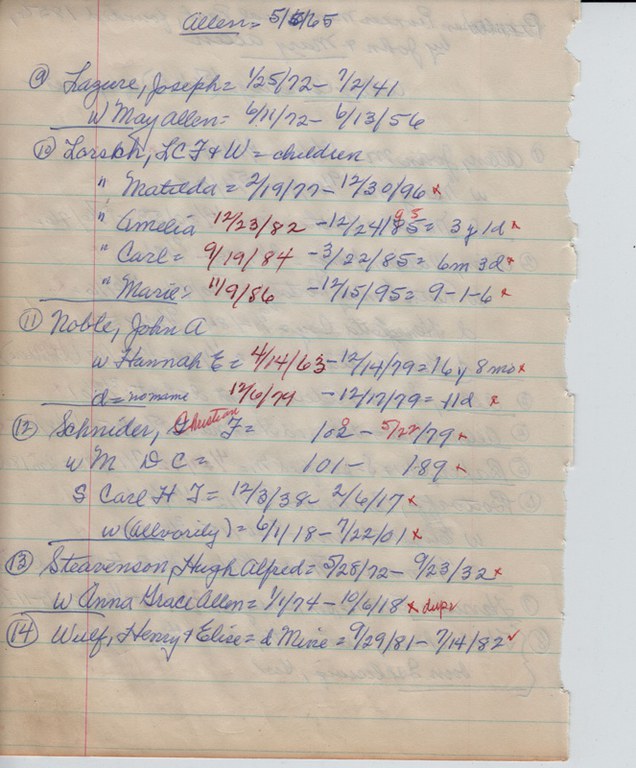 Allen = 5/5/65
⑨ Lagure, Joseph = 1/25/72 - 7/2/41
w May Allen = 6/11/72 - 6/13/56
⑩ Lorsch, LCF & W = children
" Matilda = 2/19/77 - 12/30/96 x
" Amelia 12/23/82 - 12/24/85 = 3y 1d x
" Carl = 9/19/84 - 3/22/85 = 6m 3d x
" Marie = 11/9/86 - 12/15/95 = 9-1-6 x
⑪ Noble, John A
w Hannah E = 4/14/63 - 12/14/79 = 16y 8mo x
d = no name 12/6/79 - 12/17/79 = 11d x
⑫ Schnider, Christian F = 5/22/79 x
w M D C = 101 - 189 x
S Carl H F = 12/3/38 - 2/6/17 x
w (Allvorily) = 6/1/18 - 7/22/01 x
⑬ Steavenson, Hugh Alfred = 5/28/72 - 9/23/32 x
w Anna Grace Allen = 1/1/74 - 10/6/18 x dup
⑭ Wulf, Henry & Elise = d Mine = 9/29/81 - 7/14/82 ✓